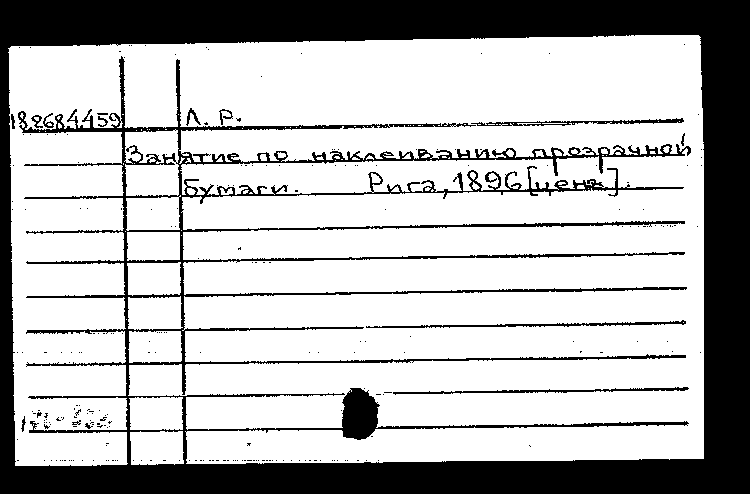 18.268.4.459 Л. Р.
Занятие по наклеиванию прозрачной
бумаги. Рига, 1896 [ценз].